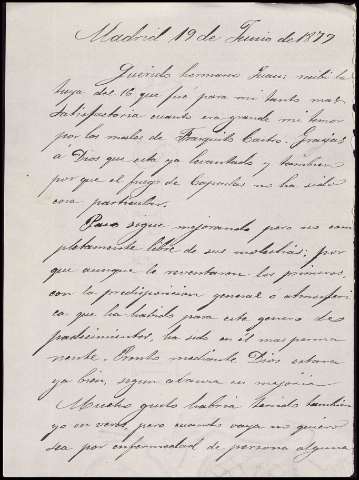 Madrid 19 de Junio de 1877
Querido hermano Juan: recibí la
tuya del 16 que fué para mi tanto mas
satisfactoria cuanto era grande mi temor
por los males de Frasquito Castro. Gracias
á Dios que esta ya levantado y tambien
por que el fuego de Capuchas no ha sido
cosa particular.
Paco sigue mejorando pero no com
pletamente libre de sus molestias; por
que aunque le reventaron los primeros,
con la predisposicion general o atmosferi
ca que ha habido para este genero de
padecimientos, ha sido en él mas perma
nente. Pronto mediante Dios estara
ya bien, segun avanza su mejoria
Mucho gusto habria tenido tambien
yo en veros, pero cuanto vaya no quiero
sea por enfermedad de persona alguna